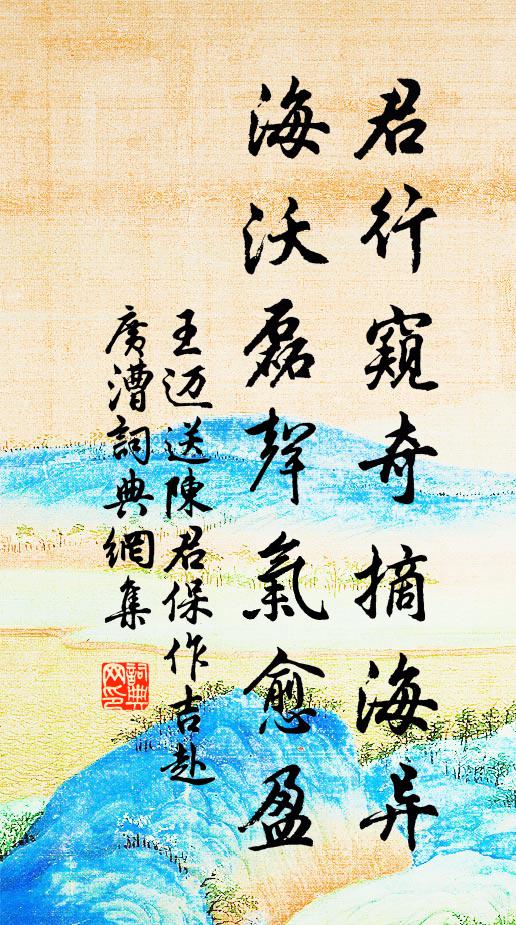 君行窺奇摘海异
海沃磊聲氣愈盈
王迈送陳君保作吉赴
廣漕詞典網集
詞典网印